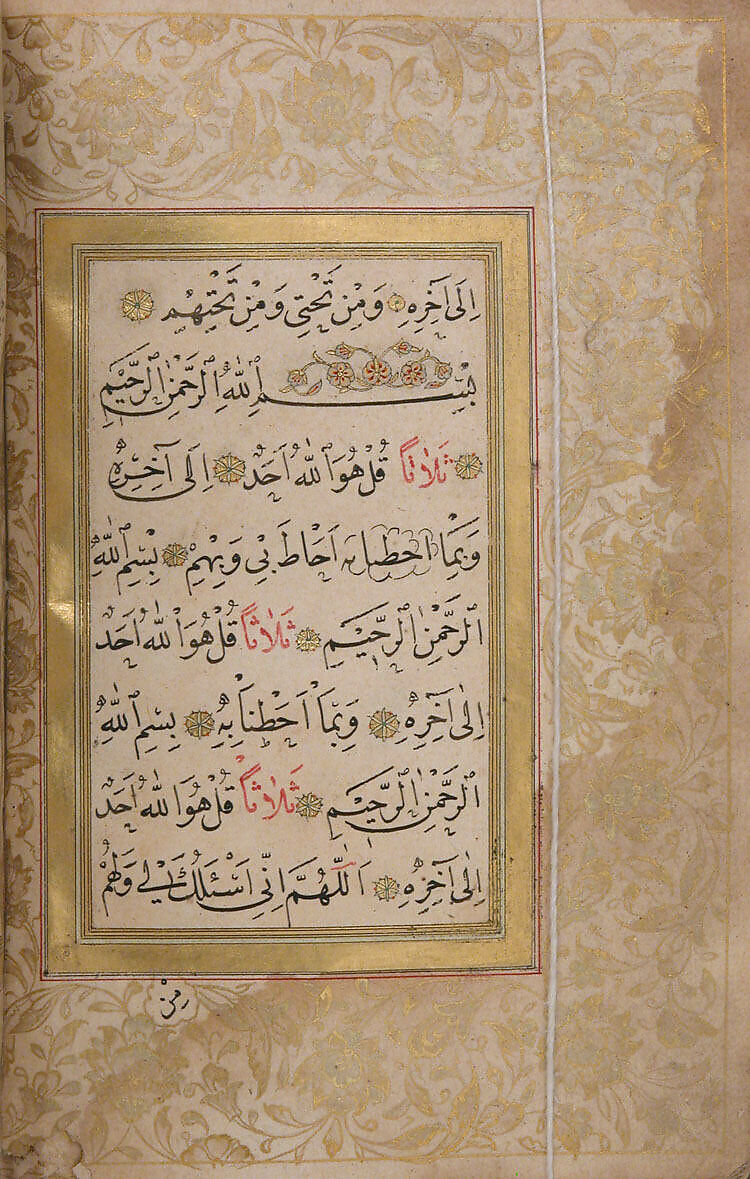 اِلٰى آخِرِهِ وَمِنْ تَحْتِى وَمِنْ تَحْتِهِمْ
بِسْمِ ٱللّٰهِ ٱلرَّحْمٰنِ ٱلرَّحِيْمِ
ثَلَاثًا قُلْ هُوَ ٱللّٰهُ اَحَدٌ اِلٰى آخِرِهِ
وَبِمَا اَحَاطَ بِى وَبِهِمْ بِسْمِ ٱللّٰهِ
ٱلرَّحْمٰنِ ٱلرَّحِيْمِ ثَلَاثًا قُلْ هُوَ ٱللّٰهُ اَحَدٌ
اِلٰى آخِرِهِ وَبِمَا اَحَطْنَا بِهِ بِسْمِ ٱللّٰهِ
ٱلرَّحْمٰنِ ٱلرَّحِيْمِ ثَلَاثًا قُلْ هُوَ ٱللّٰهُ اَحَدٌ
اِلٰى آخِرِهِ اَللّٰهُمَّ اِنِّى اَسْئَلُكَ لِى وَلَهُمْ
مِنْ